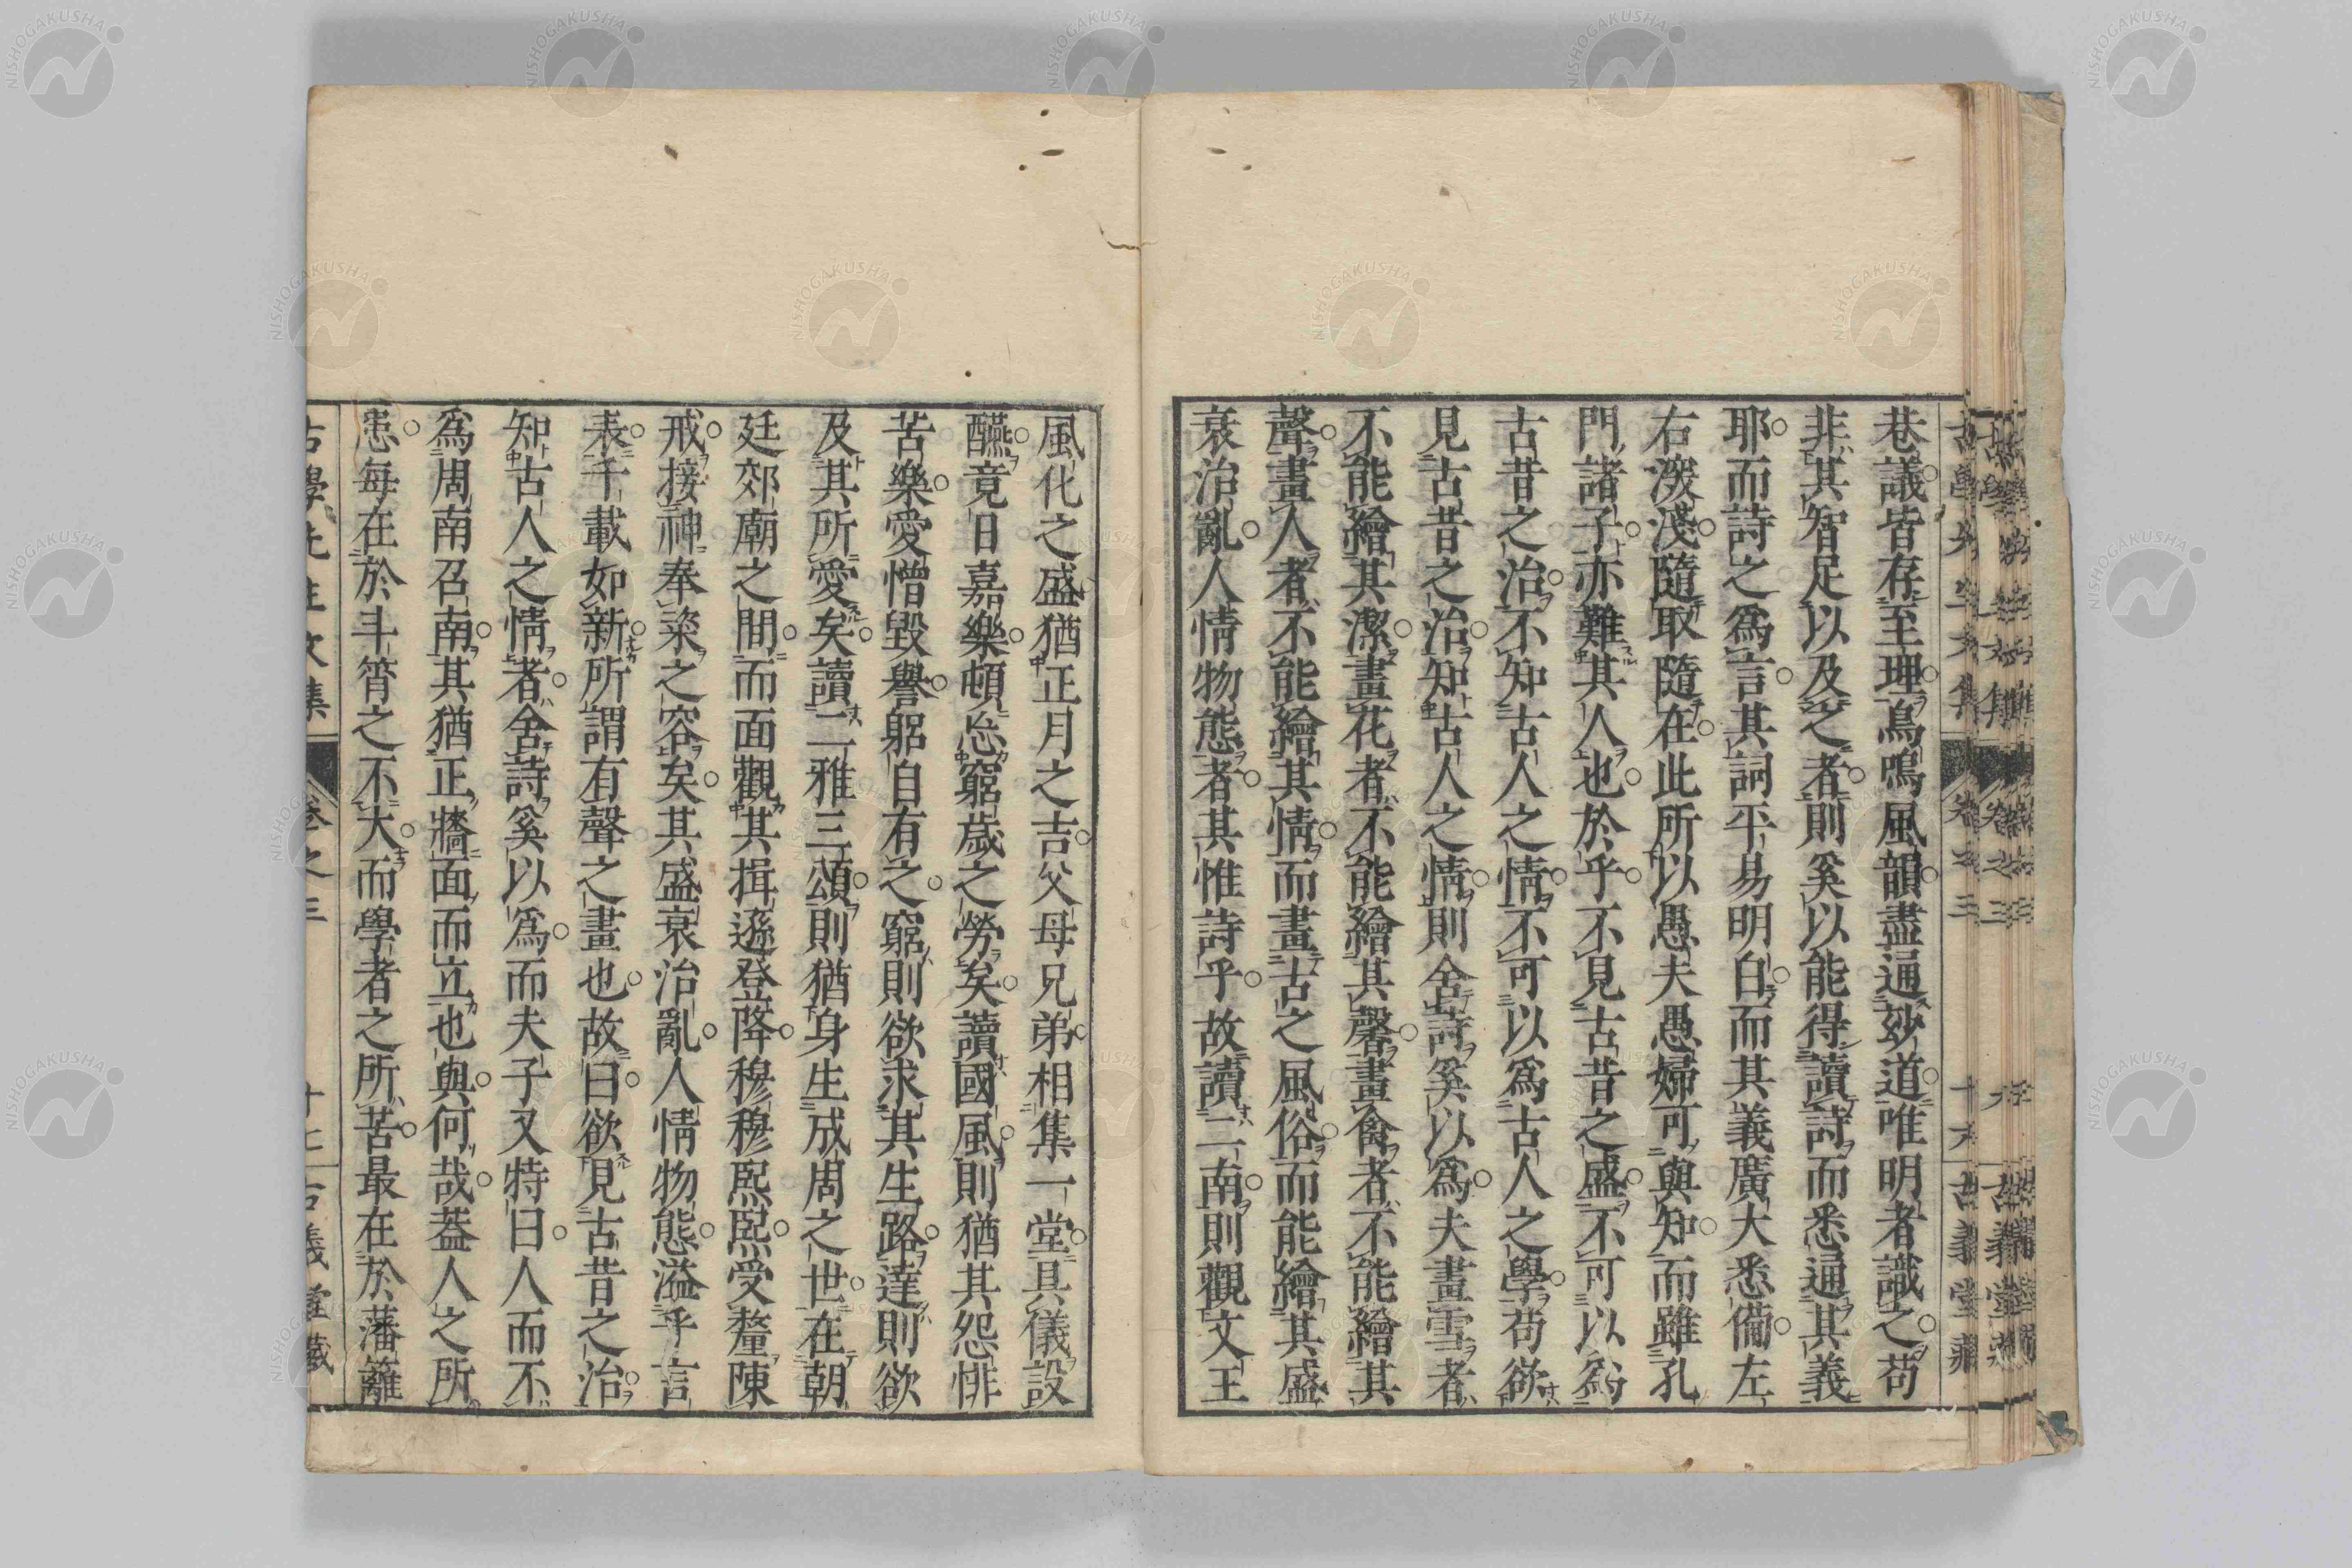 巷議皆存至理鳥鳴風韻盡通玅道唯明者識之苟
非其智足以及之者則奚以能得讀詩而悉通其義
耶而詩之爲言其詞平易明白而其義廣大悉備左
右深淺隨取隨在此所以愚夫愚婦可與知而雖孔
門諸子亦難其人也於乎不見古昔之盛不可以爲
古昔之治不知古人之情不可以爲古人之學苟欲
見古昔之治知古人之情則舍詩奚以爲夫畫雪者
不能繪其潔畫花者不能繪其馨畫禽者不能繪其
聲畫人者不能繪其情而畫古之風俗而能繪其盛
衰治亂人情物態者其惟詩乎故讀二南則觀文王
風化之盛猶正月之吉父母兄弟相集一堂具儀設
醼竟日嘉樂頓忘窮歲之勞矣讀國風則猶其怨悱
苦樂愛憎毀譽躬自有之窮則欲求其生路達則欲
及其所愛矣讀二雅三頌則猶身生成周之世在朝
廷郊廟之間而面觀其揖遜登降穆穆熙熙受釐陳
戒接神奉粢之容矣其盛衰治亂人情物態溢乎言
表千載如新所謂有聲之畫也故曰欲見古昔之治
知古人之情者舍詩奚以爲而夫子又特曰人而不
爲周南召南其猶正牆面而立也與何哉葢人之所
患每在於斗筲之不大而學者之所苦最在於藩籬
古學先生文集 卷之三 古義堂藏
NISHOGAKUSHA